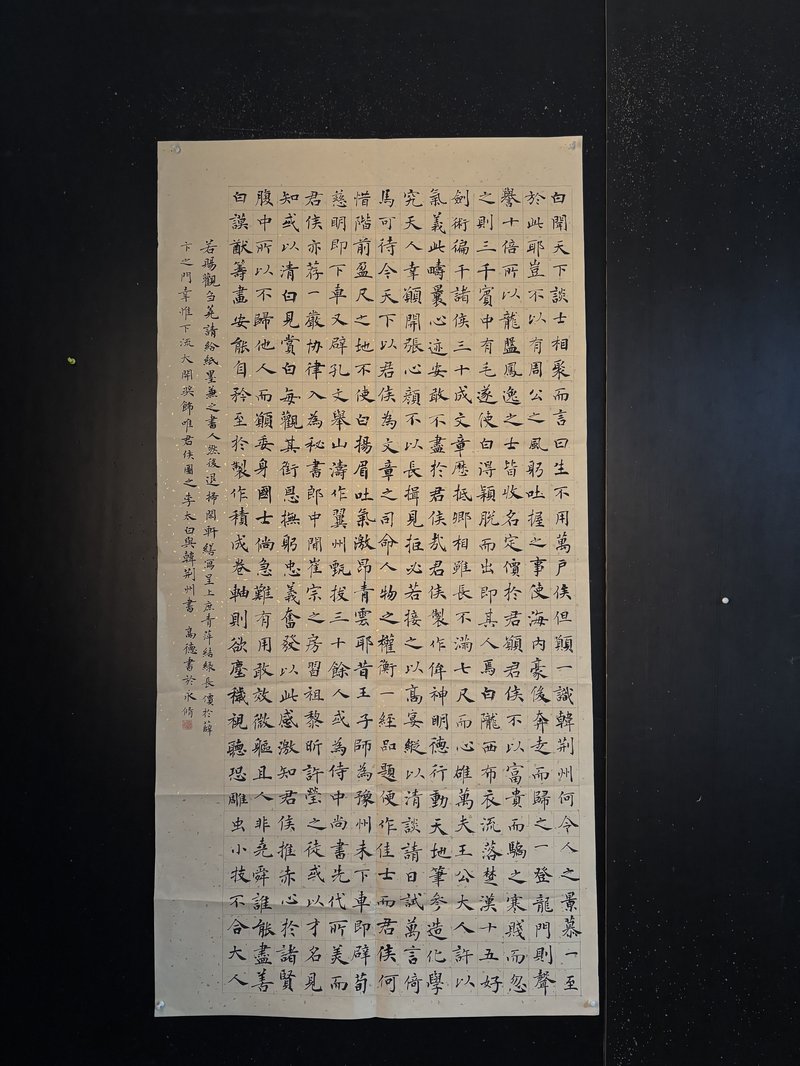 白聞天下談士相聚而言曰生不用萬戶侯但願一識韓荆州何令人之景慕一至
於此耶豈不以有周公之風躬吐握之事使海內豪俊奔走而歸之一登龍門則聲
譽十倍所以龍盤鳳逸之士皆收名定價於君願君侯不以富貴而驕之寒賤而忽
之則三千賓中有毛遂使白得穎脫而出即其人焉白隴西布衣流落楚漢十五好
劍術徧干諸侯三十成文章歷抵卿相雖長不滿七尺而心雄萬夫王公大人許以
氣義此疇曩心迹安敢不盡於君侯哉君侯製作侔神明德行動天地筆參造化學
究天人幸願開張心顏不以長揖見拒必若接之以高宴縱以清談請日試萬言倚
馬可待今天下以君侯為文章之司命人物之權衡一經品題便作佳士而君侯何
惜階前盈尺之地不使白揚眉吐氣激昂青雲耶昔王子師為豫州未下車即辟荀
慈明即下車又辟孔文舉山濤作翼州甄拔三十餘人或為侍中尚書先代所美而
君侯亦荐一嚴協律入為秘書郎中間崔宗之房習祖黎昕許瑩之徒或以才名見
知或以清白見賞白每觀其銜恩撫躬忠義奮發以此感激知君侯推赤心於諸賢
腹中所以不歸他人而願委身國士倘急難有用敢效微軀且人非堯舜誰能盡善
白謨猷籌畫安能自矜至於製作積成卷軸則欲塵穢視聽恐雕虫小技不合大人
若賜觀芻蕘請給紙墨兼之書人然後退掃閑軒繕寫呈上庶青萍結綠長價於薛
卞之門幸惟下流大開獎飾唯君侯圖之李太白與韓荆州書 高德書於永脩